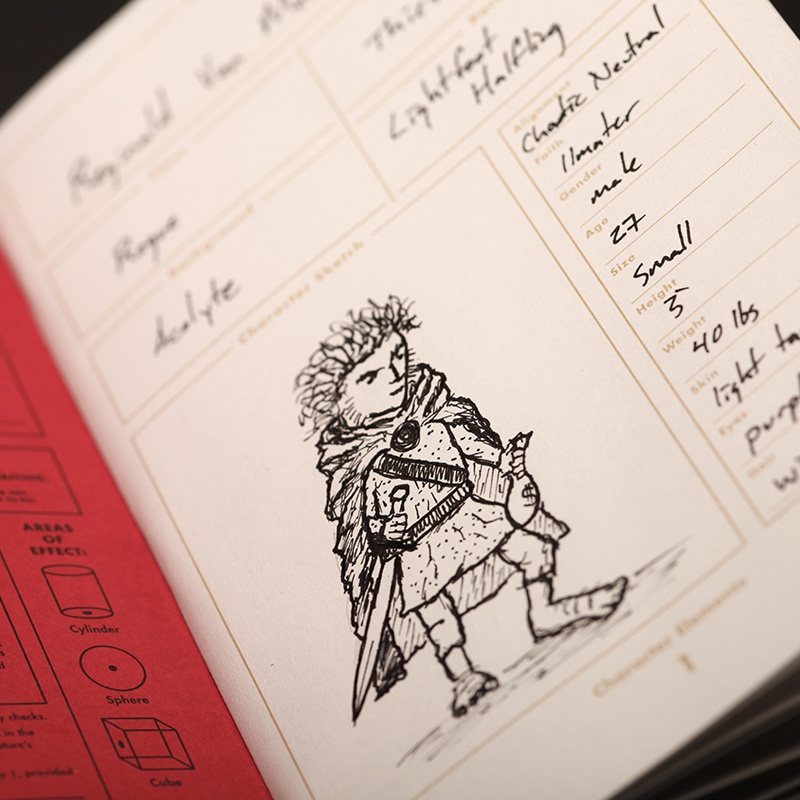 Reginald Von
Lightfoot
Halfling
Rogue
Background
Acolyte
Character Sketch
Alignment
Chaotic Neutral
Faith
Ilmater
Gender
male
Age
27
Size
Small
Height
3'
Weight
40 lbs
Skin
light
Eyes
Hair
Character Elements
1
AREAS
OF
EFFECT:
Cylinder
Sphere
Cube
checks.
in the
provided